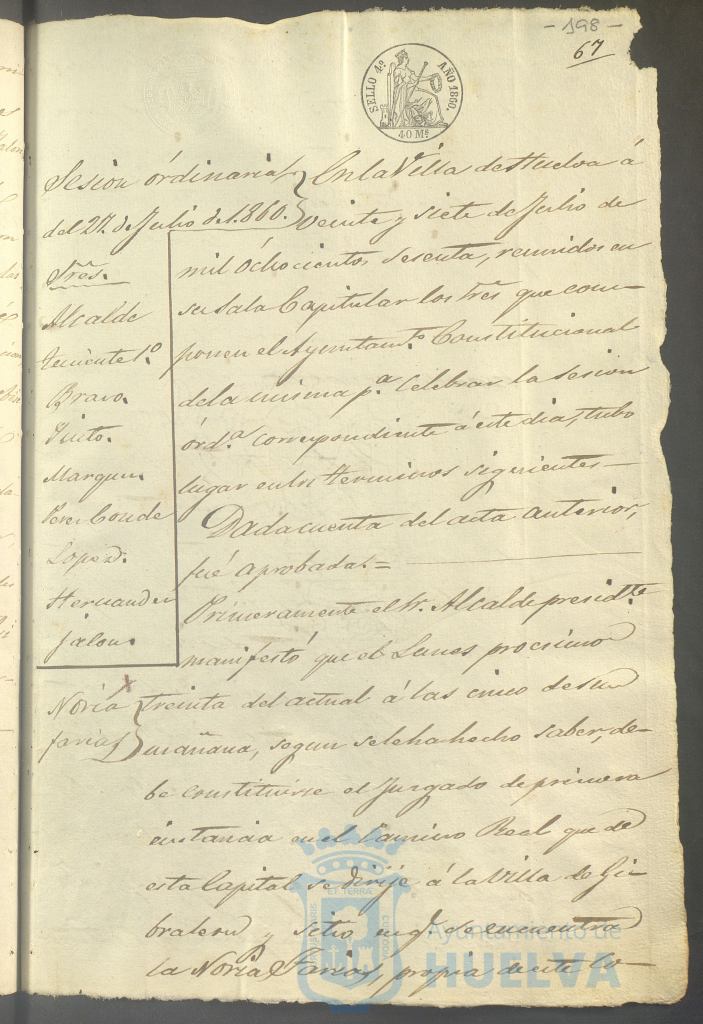 - 198 -
67
SELLO 4º AÑO 1860.
40 Ms
Sesion órdinaria
del 27. de Julio de 1.860.
Sres.
Alcalde
Teniente 1.º
Bravo.
Pinto.
Marquez.
Perez Conde
Lopez.
Hernandez
Jalon.
En la Villa de Huelva á
veinte y siete de Julio de
mil óchocientos sesenta, reunidos en
su Sala Capitular los Sres que com-
ponen el Ayuntamto. Constitucional
de la misma pa. celebrar la sesion
órda. correspondiente á este dia, tubo
lugar en los terminos siguientes
Dada cuenta del acta anterior,
fué aprobada. =
Primeramente el Sr. Alcalde presidte.
manifestó que el Lunes procsimo
Noria
farias
treinta del actual á las cinco de su
mañana, segun se le ha hecho saber, de-
be constituirse el Juzgado de primera
instancia en el Camino Real que de
esta Capital se dirije á la Villa de Gi-
braleon y sitio en q. se encuentra
la Noria Farias, propia de este Co-
ET TERRA
Ayuntamiento de
HUELVA